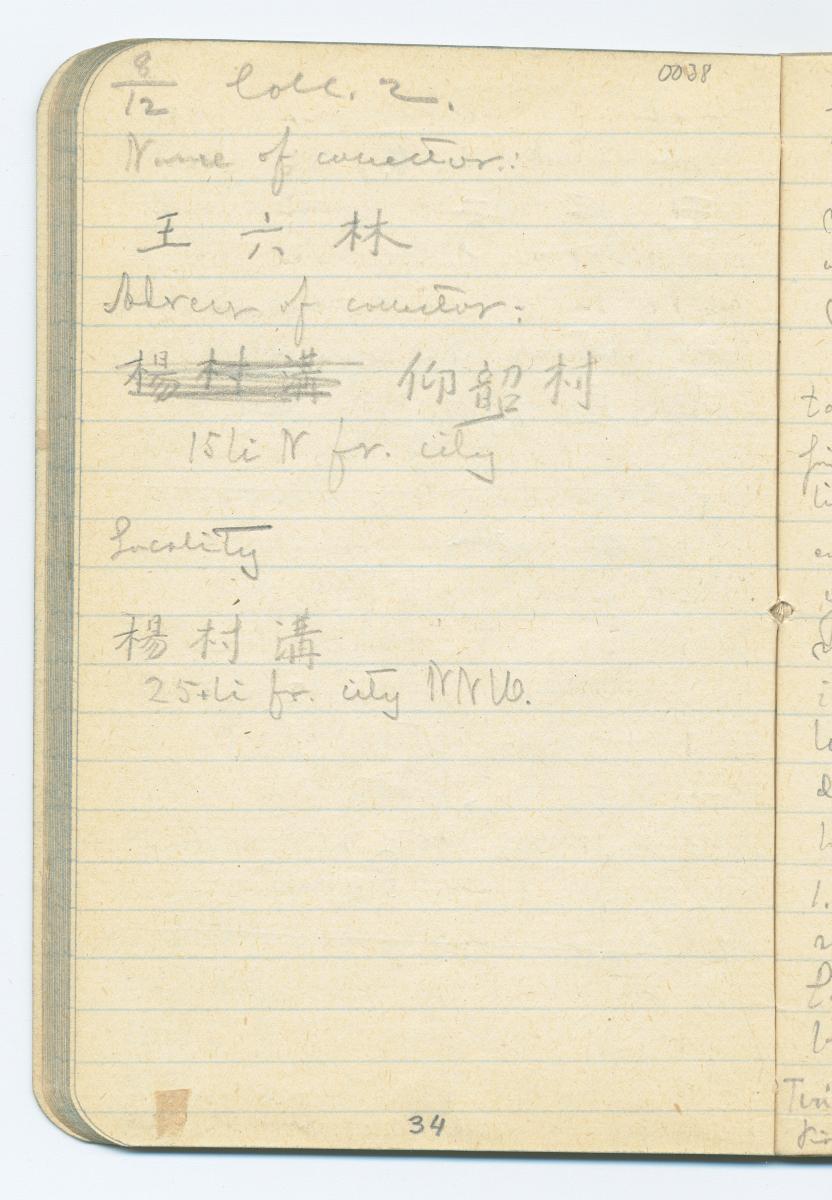 0038
8/12 Coll. 2.
Name of collector:
王 六 林
Adress of collector:
楊 村 溝 仰 韶 村
15 li N fr. city
Locality
楊 村 溝
25+li fr. city NNW.
34